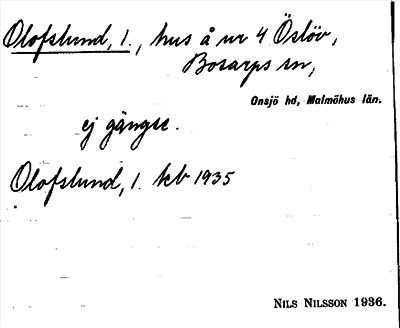 Olofslund, 1., hus å nr 4 Öslöv,
Bosarps sn,
Onsjö hd, Malmöhus län.
ej gängse.
Olofslund, 1. kb 1935
NILS NILSSON 1936.